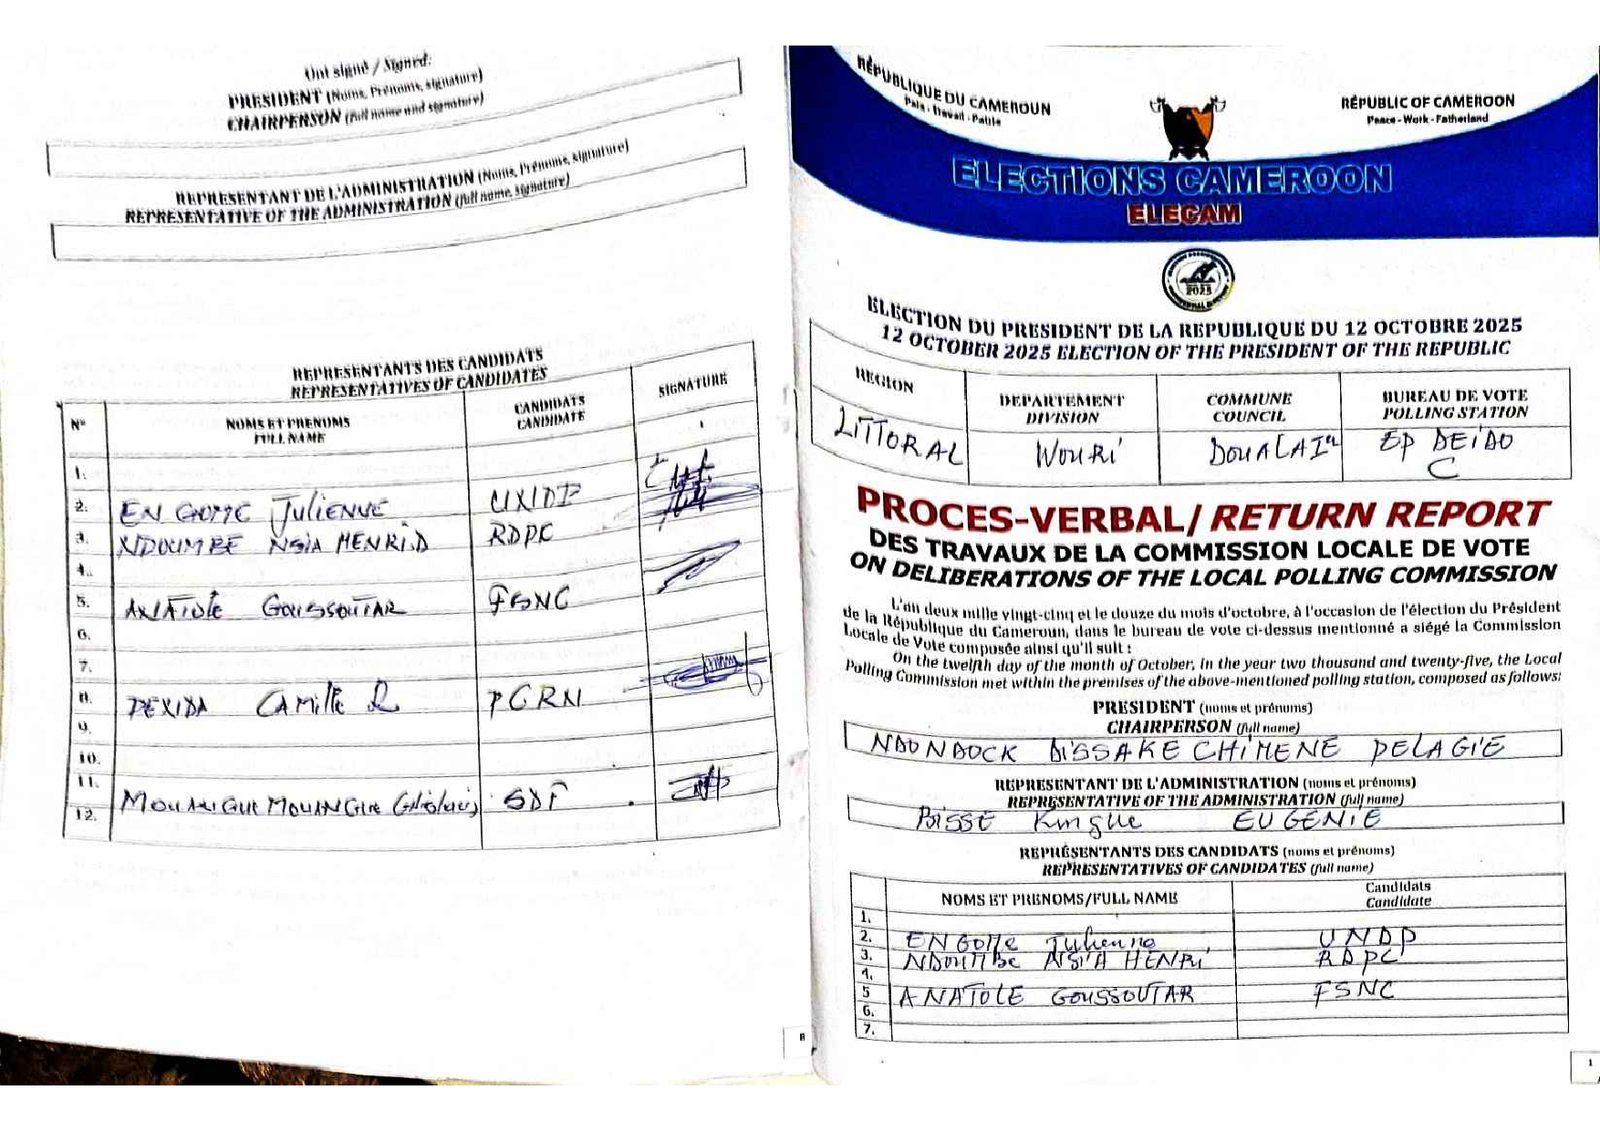 Ont signé / Signed:
PRESIDENT (Noms, Prénoms, signature)
CHAIRPERSON (full name and signature)
REPRESENTANT DE L'ADMINISTRATION (Noms, Prénoms, signature)
REPRESENTATIVE OF THE ADMINISTRATION (full name, signature)
REPRESENTANTS DES CANDIDATS
REPRESENTATIVES OF CANDIDATES
N° NOMS ET PRENOMS FULL NAME CANDIDATS CANDIDATE SIGNATURE
1.
2. ENGOME Julienne UNDP
3. NDOUMBE NSIA HENRI.D RDPC
4.
5. ANATOLE GOUSSOUTAR FSNC
6.
7.
8. CAMille PCRN
9.
10.
11.
12. MOUANGUE MOUANGUE SDF
8
RÉPUBLIQUE DU CAMEROUN
Paix - Travail - Patrie
RÉPUBLIC OF CAMEROON
Peace - Work - Fatherland
ELECTIONS CAMEROON
ELECAM
2025
ELECTION DU PRESIDENT DE LA REPUBLIQUE DU 12 OCTOBRE 2025
12 OCTOBER 2025 ELECTION OF THE PRESIDENT OF THE REPUBLIC
REGION DEPARTEMENT DIVISION COMMUNE COUNCIL BUREAU DE VOTE POLLING STATION
LITTORAL WOURI DOUALA Ier EP DEIDO C
PROCES-VERBAL/ RETURN REPORT
DES TRAVAUX DE LA COMMISSION LOCALE DE VOTE
ON DELIBERATIONS OF THE LOCAL POLLING COMMISSION
L'an deux mille vingt-cinq et le douze du mois d'octobre, à l'occasion de l'élection du Président
de la République du Cameroun, dans le bureau de vote ci-dessus mentionné a siégé la Commission
Locale de Vote composée ainsi qu'il suit :
On the twelfth day of the month of October, in the year two thousand and twenty-five, the Local
Polling Commission met within the premises of the above-mentioned polling station, composed as follows:
PRESIDENT (noms et prénoms)
CHAIRPERSON (full name)
NDONDOCK DISSAKE CHIMENE PELAGIE
REPRESENTANT DE L'ADMINISTRATION (noms et prénoms)
REPRESENTATIVE OF THE ADMINISTRATION (full name)
Kingue EUGENIE
REPRÉSENTANTS DES CANDIDATS (noms et prénoms)
REPRESENTATIVES OF CANDIDATES (full name)
NOMS ET PRENOMS/FULL NAME Candidats Candidate
1.
2. ENGOME Julienne UNDP
3. NDOUMBE NSIA HENRI RDPC
4.
5 ANATOLE GOUSSOUTAR FSNC
6.
7.
1